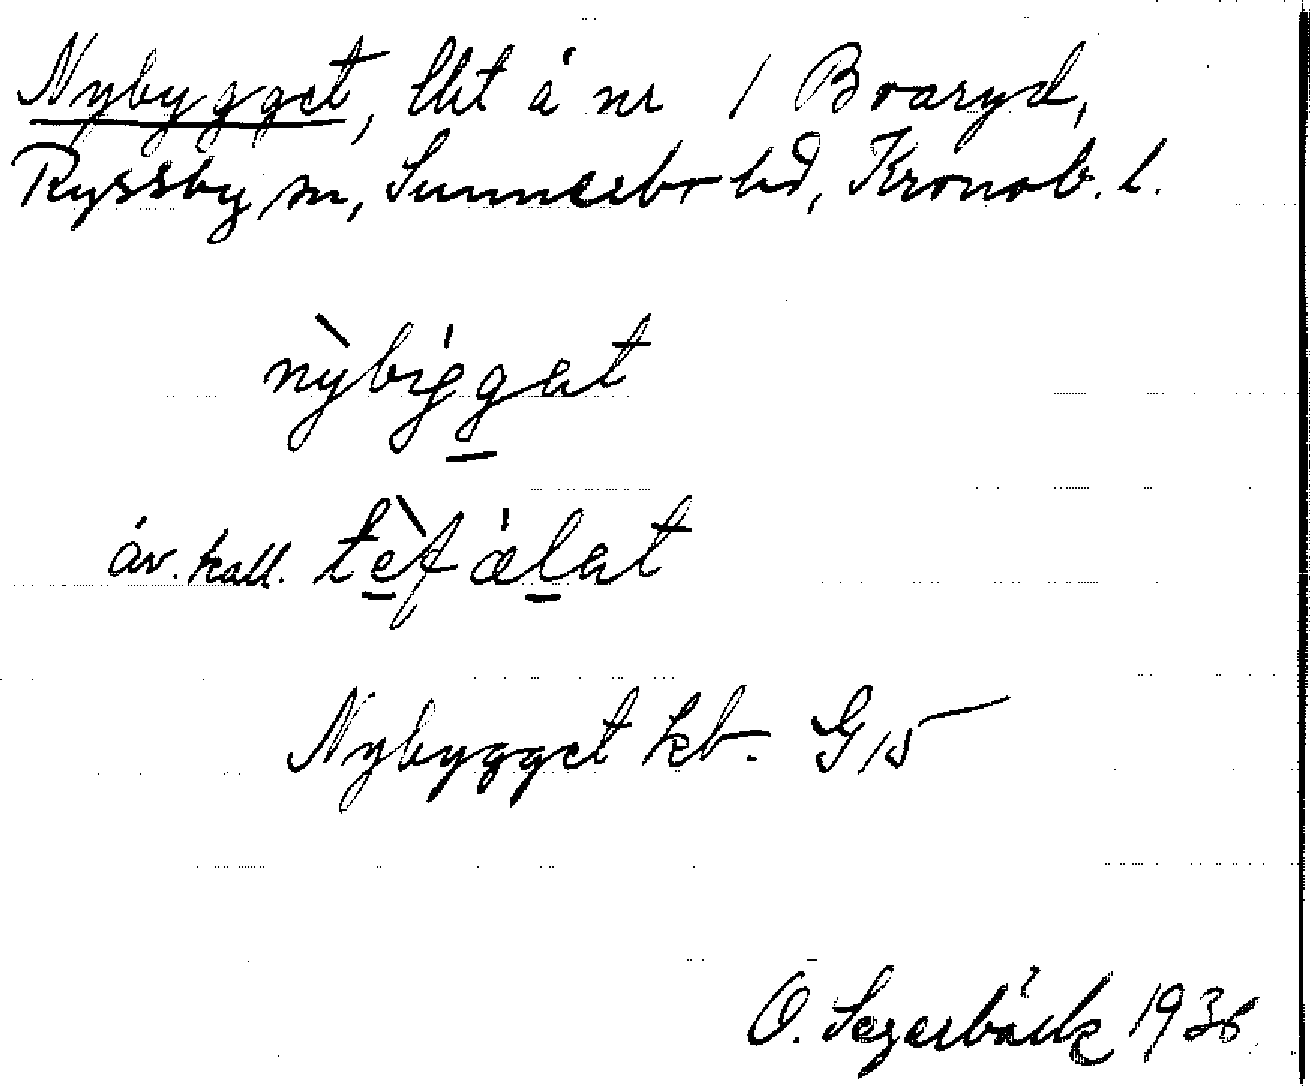 Nybygget, lht å nr 1 Boaryd,
Ryssby sn, Sunnerbo hd, Kronob. l.
nỳbi̍ggat
äv. kall. tèfa̍lat
Nybygget kb. G 15
O. Segerbäck 1936